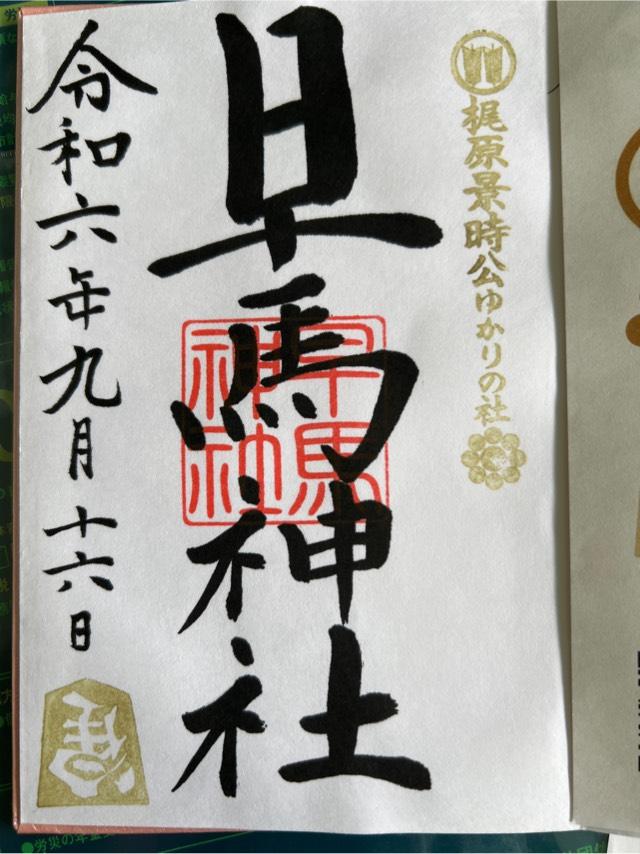 梶原景時公ゆかりの社
早馬神社
早馬
神社
令和六年九月十六日